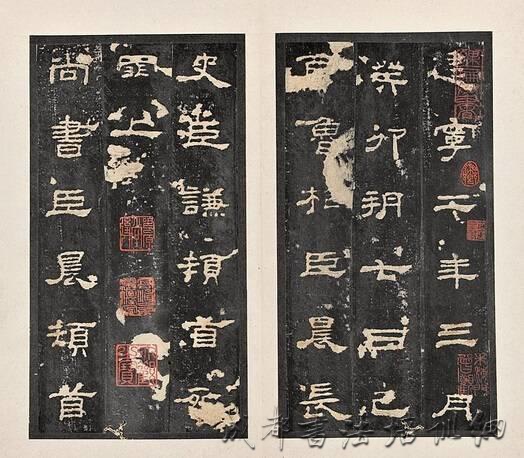 建寧二年三月
癸卯朔七日己
酉魯相臣晨長
史臣謙頓首死
罪上
尚書臣晨頓首
成都書法培训网